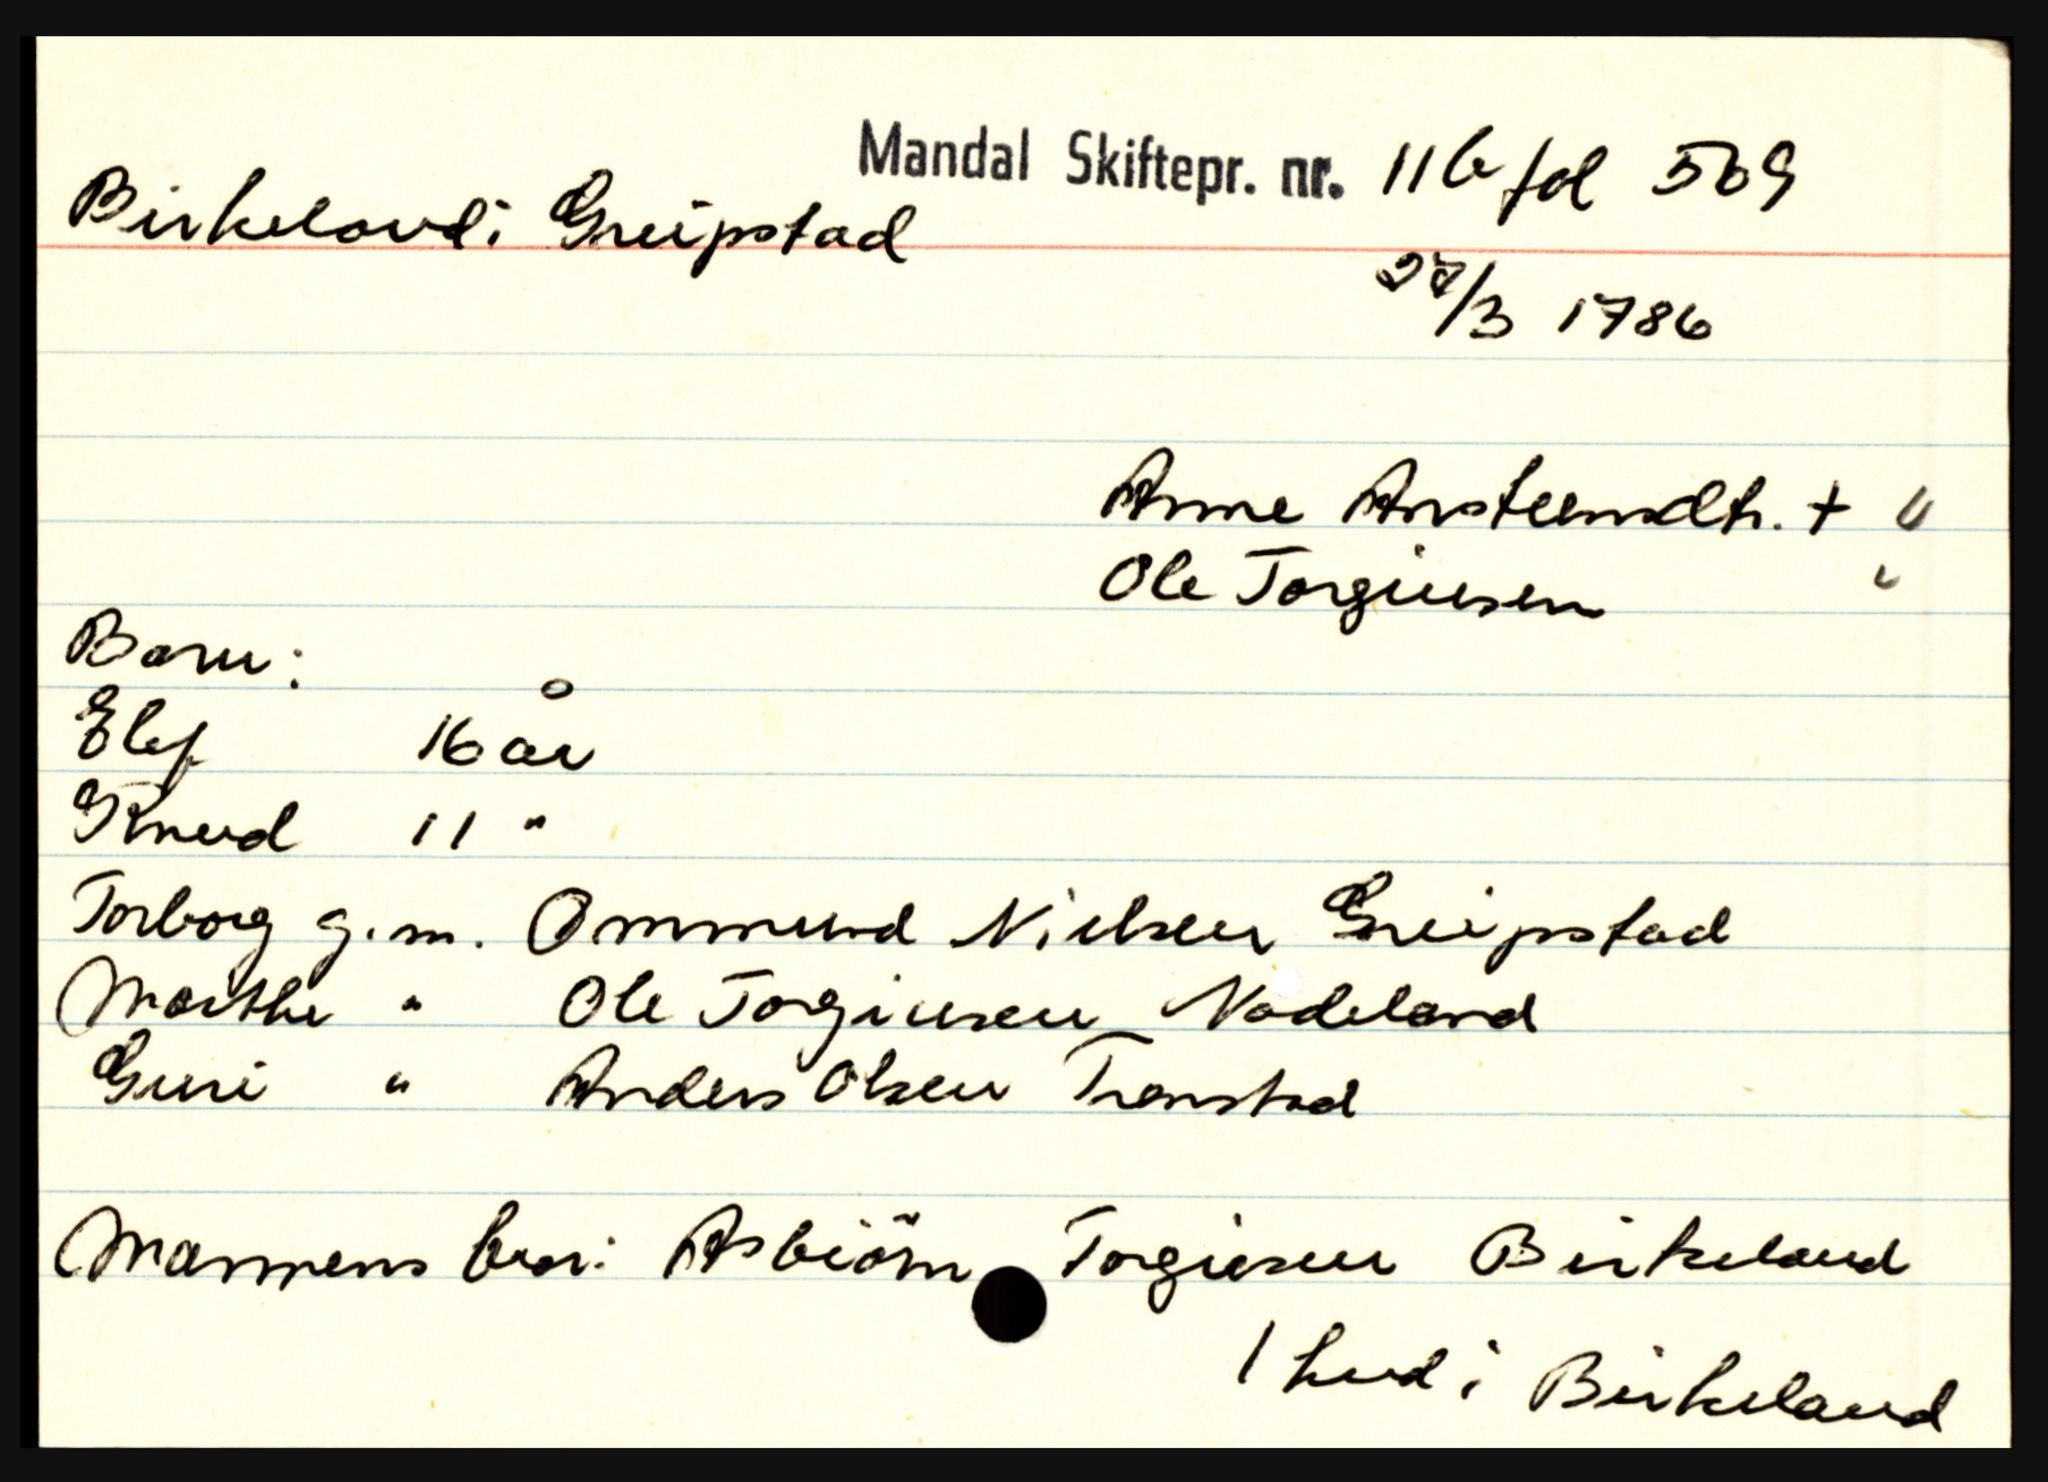 Mandal Skiftepr. nr. 11b fol 569
Birkeland i Greipstad
27/3 1786
Anne Anstensdtr. +
Ole Torgiusen
Barn:
Elef 16 år
Knud 11 "
Torborg g.m. Ommund Nielsen Greipstad
Marthe " Ole Torgiusen Nodeland
Guri " Anders Olsen Tronstad
Mannens bror: Asbiörn Torgiusen Birkeland
1 hud i Birkeland